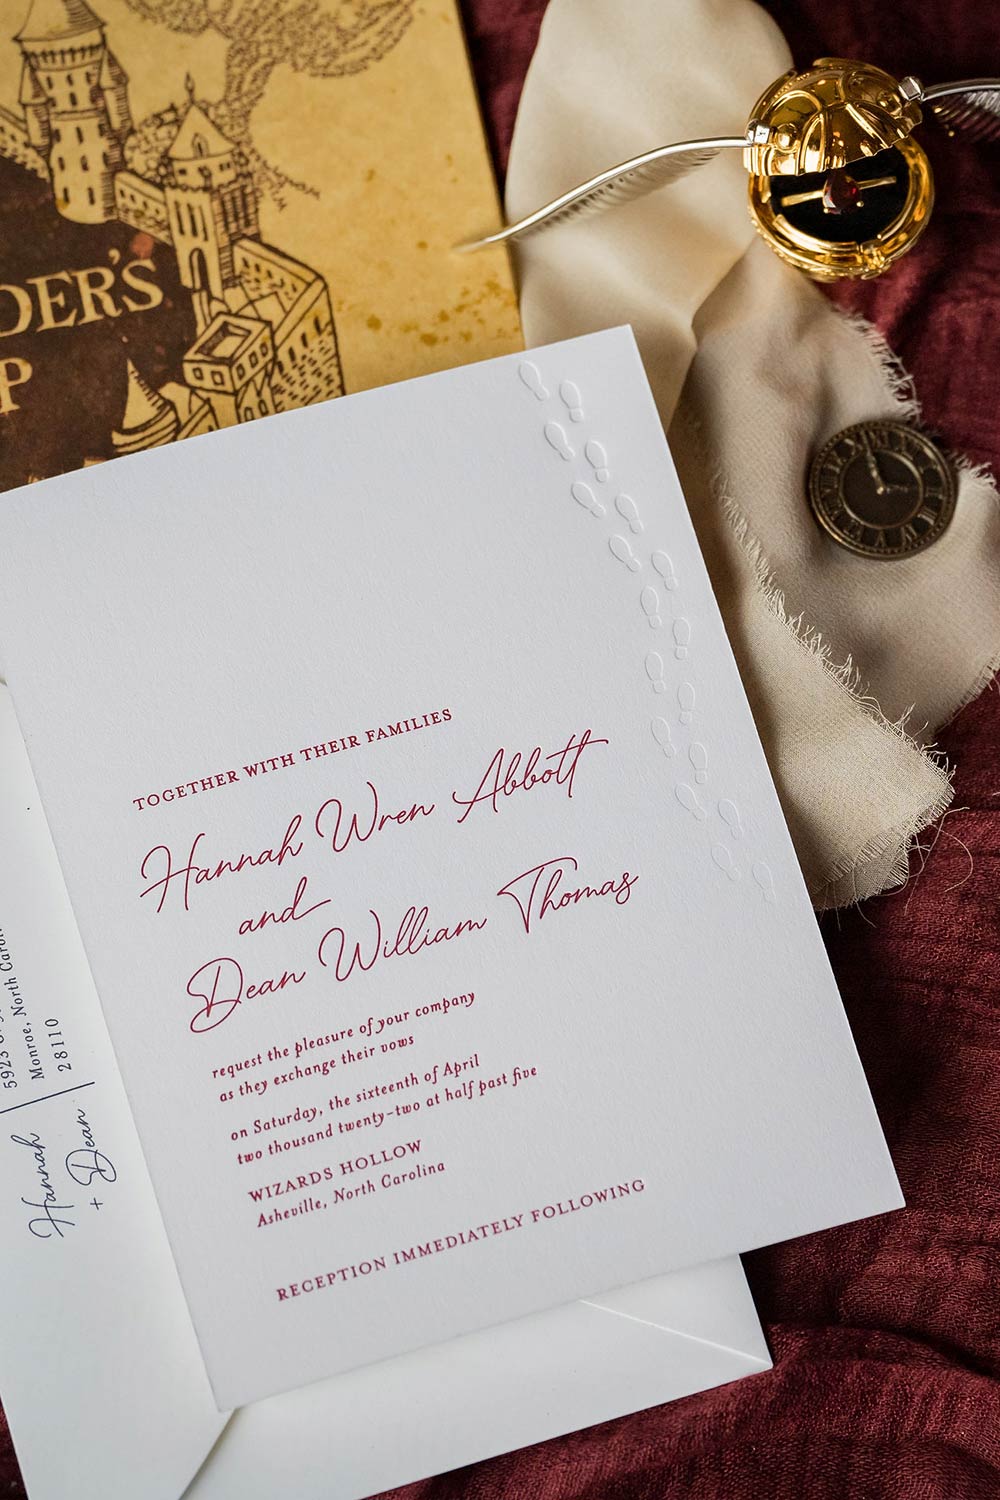 DER'S
P
TOGETHER WITH THEIR FAMILIES
Hannah Wren Abbott
and
Dean William Thomas
request the pleasure of your company
as they exchange their vows
on Saturday, the sixteenth of April
two thousand twenty-two at half past five
WIZARDS HOLLOW
Asheville, North Carolina
RECEPTION IMMEDIATELY FOLLOWING
Hannah
+ Dean
5923
Monroe, North Caro
28110